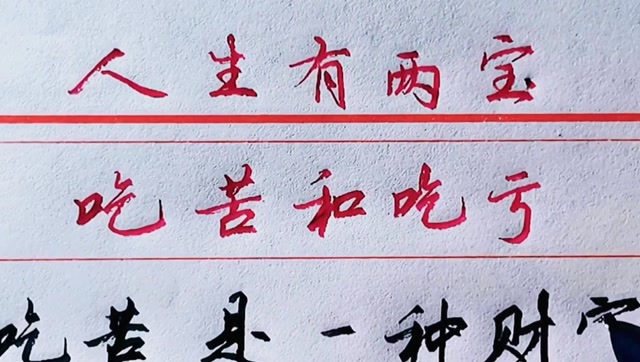 人生有两宝
吃苦和吃亏
吃苦是一种财富